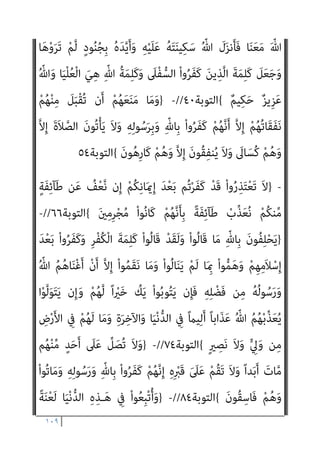 اللهَ مَعَنَا فَأَنزَلَ اللهُ سَكِينَتَهُ عَلَيْهِ وَأَيَّدَهُ بِجُنُودٍ لَّمْ تَرَوْهَا
وَجَعَلَ كَلِمَةَ الَّذِينَ كَفَرُواْ السُّفْلَى وَكَلِمَةُ اللهِ هِيَ الْعُلْيَا وَاللهُ
عَزِيزٌ حَكِيمٌ {التوبة٤٠//-{وَمَا مَنَعَهُمْ أَن تُقْبَلَ مِنْهُمْ
نَفَقَاتُهُمْ إِلاَّ أَنَّهُمْ كَفَرُواْ بِاللهِ وَبِرَسُولِهِ وَلاَ يَأْتُونَ الصَّلاَةَ إِلاَّ
وَهُمْ كُسَالَى وَلاَ يُنفِقُونَ إِلاَّ وَهُمْ كَارِهُونَ {التوبة٥٤
-{لاَ تَعْتَذِرُواْ قَدْ كَفَرْتُم بَعْدَ إِيمَانِكُمْ إِن نَّعْفُ عَن طَآئِفَةٍ
مِّنكُمْ نُعَذِّبْ طَآئِفَةً بِأَنَّهُمْ كَانُواْ مُجْرِمِينَ {التوبة٦٦//-
{يَحْلِفُونَ بِاللهِ مَا قَالُواْ وَلَقَدْ قَالُواْ كَلِمَةَ الْكُفْرِ وَكَفَرُواْ بَعْدَ
إِسْلاَمِهِمْ وَهَمُّواْ بِمَا لَمْ يَنَالُواْ وَمَا نَقَمُواْ إِلاَّ أَنْ أَغْنَاهُمُ اللهُ
وَرَسُولُهُ مِن فَضْلِهِ فَإِن يَتُوبُواْ يَكُ خَيْراً لَّهُمْ وَإِن يَتَوَلَّوْا
يُعَذِّبْهُمُ اللهُ عَذَاباً أَلِيماً فِي الدُّنْيَا وَالآخِرَةِ وَمَا لَهُمْ فِي الأَرْضِ
مِن وَلِيٍّ وَلاَ نَصِيرٍ {التوبة٧٤//-{وَلاَ تُصَلِّ عَلَى أَحَدٍ مِّنْهُم
مَّاتَ أَبَداً وَلاَ تَقُمْ عَلَىَ قَبْرِهِ إِنَّهُمْ كَفَرُواْ بِاللهِ وَرَسُولِهِ وَمَاتُواْ
وَهُمْ فَاسِقُونَ {التوبة٨٤//-{وَأُتْبِعُواْ فِي هَـذِهِ الدُّنْيَا لَعْنَةً
١٠٩